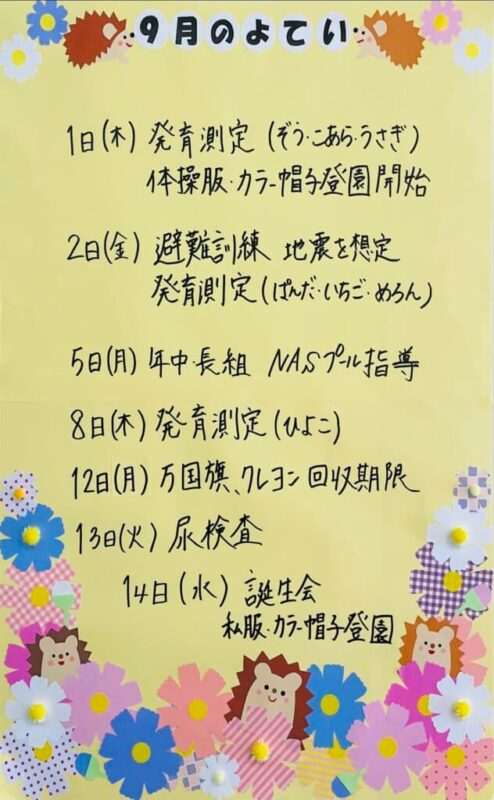 9月のよてい
1日(木) 発育測定 (ぞう・こあら・うさぎ)
体操服・カラー帽子登園開始
2日(金) 避難訓練 地震を想定
発育測定(ぱんだ・いちご・めろん)
5日(月) 年中・長組 NASプール指導
8日(木) 発育測定(ひよこ)
12日(月) 万国旗、クレヨン回収期限
13日(火) 尿検査
14日(水) 誕生会
私服・カラー帽子登園